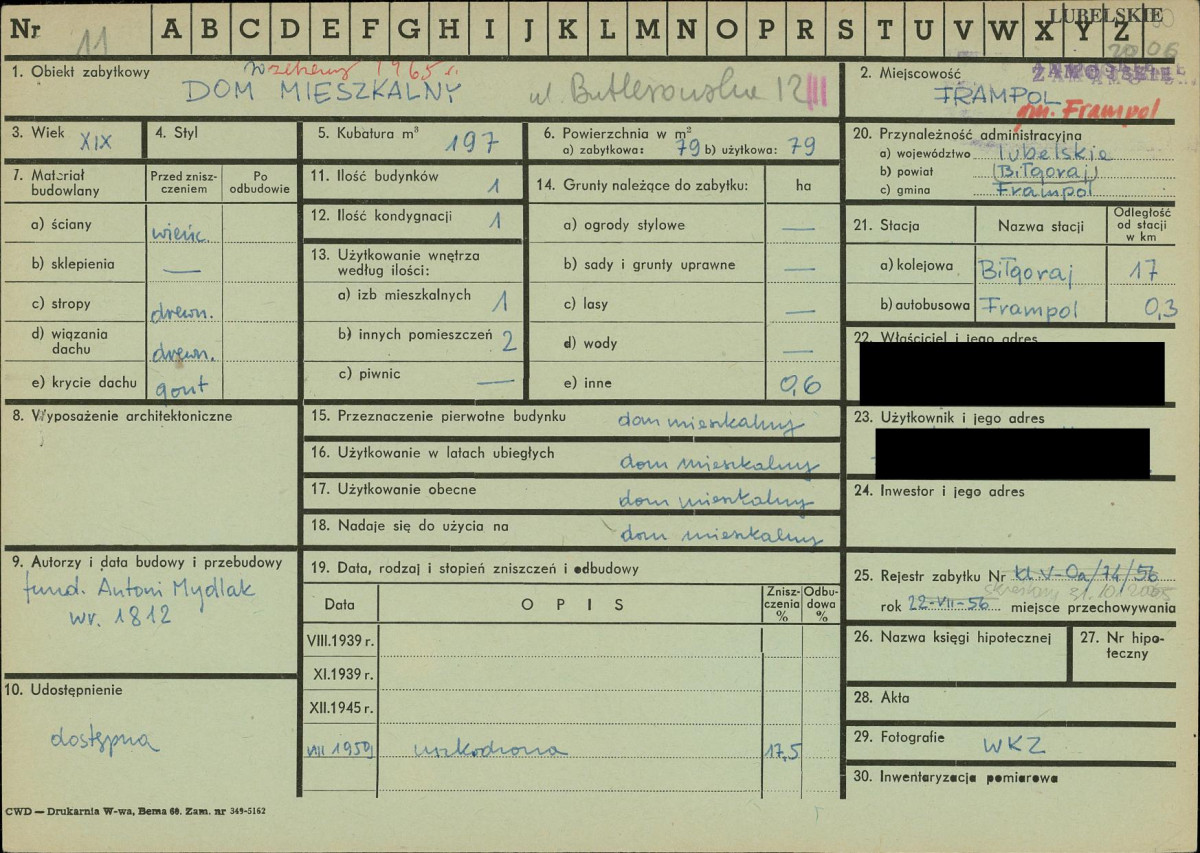 Nr 11 A B C D E F G H I J K L M N O P R S T U V W X Y Z
LUBELSKIE
1. Obiekt zabytkowy 1965 r.
DOM MIESZKALNY ul. Butlerowska 12
2. Miejscowość
FRAMPOL
gm. Frampol
3. Wiek XIX
4. Styl
5. Kubatura m³ 197
6. Powierzchnia w m²
a) zabytkowa: 79 b) użytkowa: 79
7. Materiał budowlany
Przed zniszczeniem
Po odbudowie
a) ściany wieńc.
b) sklepienia —
c) stropy drewn.
d) wiązania dachu drewn.
e) krycie dachu gont
8. Wyposażenie architektoniczne
9. Autorzy i data budowy i przebudowy
fund. Antoni Mydlak
wr. 1812
10. Udostępnienie
dostępna
11. Ilość budynków 1
12. Ilość kondygnacji 1
13. Użytkowanie wnętrza według ilości:
a) izb mieszkalnych 1
b) innych pomieszczeń 2
c) piwnic —
14. Grunty należące do zabytku: ha
a) ogrody stylowe —
b) sady i grunty uprawne —
c) lasy —
d) wody —
e) inne 0,6
15. Przeznaczenie pierwotne budynku dom mieszkalny
16. Użytkowanie w latach ubiegłych dom mieszkalny
17. Użytkowanie obecne dom mieszkalny
18. Nadaje się do użycia na dom mieszkalny
19. Data, rodzaj i stopień zniszczeń i odbudowy
Data O P I S Zniszczenia % Odbudowa %
VIII.1939 r.
XI.1939 r.
XII.1945 r.
VIII 1959 uszkodzona 17,5
20. Przynależność administracyjna
a) województwo lubelskie
b) powiat (Biłgoraj)
c) gmina Frampol
21. Stacja Nazwa stacji Odległość od stacji w km
a) kolejowa Biłgoraj 17
b) autobusowa Frampol 0,3
22. Właściciel i jego adres
23. Użytkownik i jego adres
24. Inwestor i jego adres
25. Rejestr zabytku Nr Kl.V-0a/74/56
rok 22-VII-56 miejsce przechowywania
26. Nazwa księgi hipotecznej
27. Nr hipoteczny
28. Akta
29. Fotografie WKZ
30. Inwentaryzacja pomiarowa
CWD — Drukarnia W-wa, Bema 60. Zam. nr 349-5162